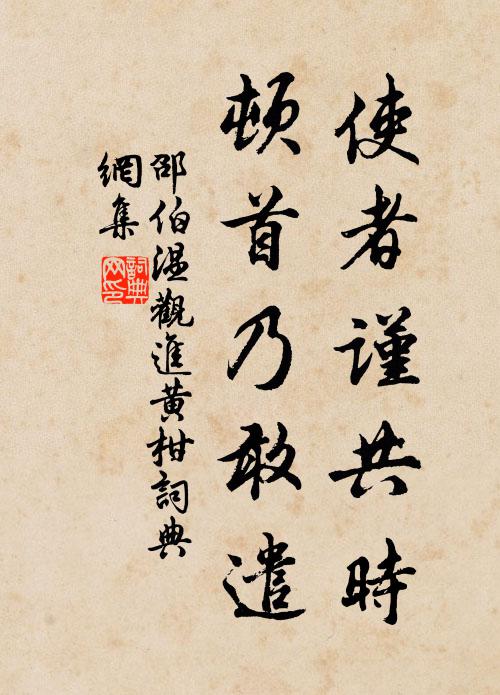 使者謹共時
頓首乃敢遣
邵伯温觀進黄柑詞典
網集
詞典
网印